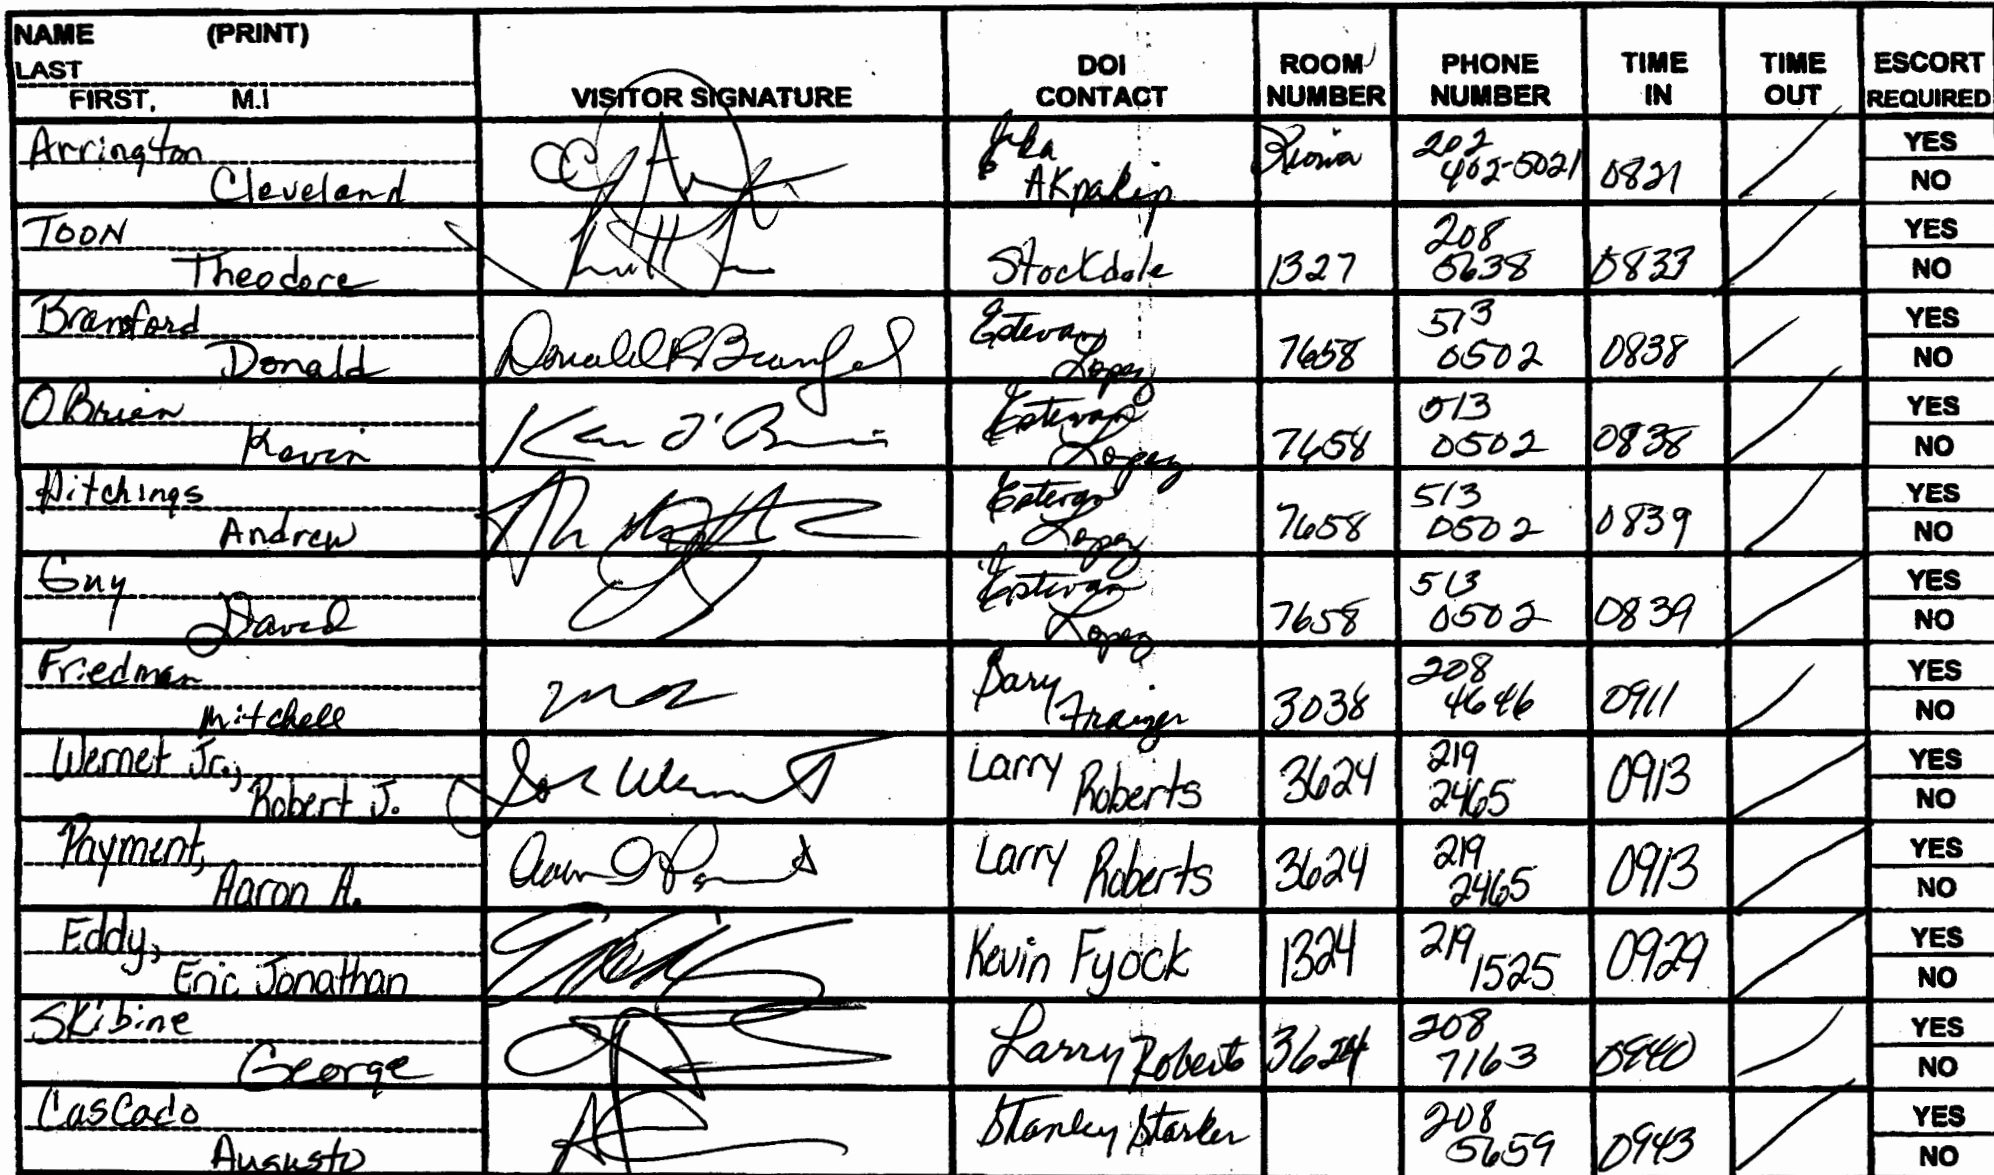 NAME (PRINT)
LAST
FIRST, M.I
VISITOR SIGNATURE
DOI
CONTACT
ROOM
NUMBER
PHONE
NUMBER
TIME
IN
TIME
OUT
ESCORT
REQUIRED
Arrington
Cleveland
AKpakip
202
402-5021
0821
YES
NO
TOON
Theodore
Stockdale
1327
208
5638
0833
YES
NO
Bransford
Donald
Estevan
Lopez
7658
513
0502
0838
YES
NO
O'Brien
Kevin
Estevan
Lopez
7658
513
0502
0838
YES
NO
Hitchings
Andrew
Estevan
Lopez
7658
513
0502
0839
YES
NO
Guy
David
Estevan
Lopez
7658
513
0502
0839
YES
NO
Friedman
Mitchell
Gary
Frazer
3038
208
4646
0911
YES
NO
Wernet Jr.,
Robert J.
Larry
Roberts
3624
219
2465
0913
YES
NO
Payment,
Aaron A.
Larry
Roberts
3624
219
2465
0913
YES
NO
Eddy,
Eric Jonathan
Kevin Fyock
1324
219
1525
0929
YES
NO
Skibine
George
Larry Roberts
3624
208
7163
0940
YES
NO
Cascado
Augusto
Stanley Starker
208
5659
0943
YES
NO